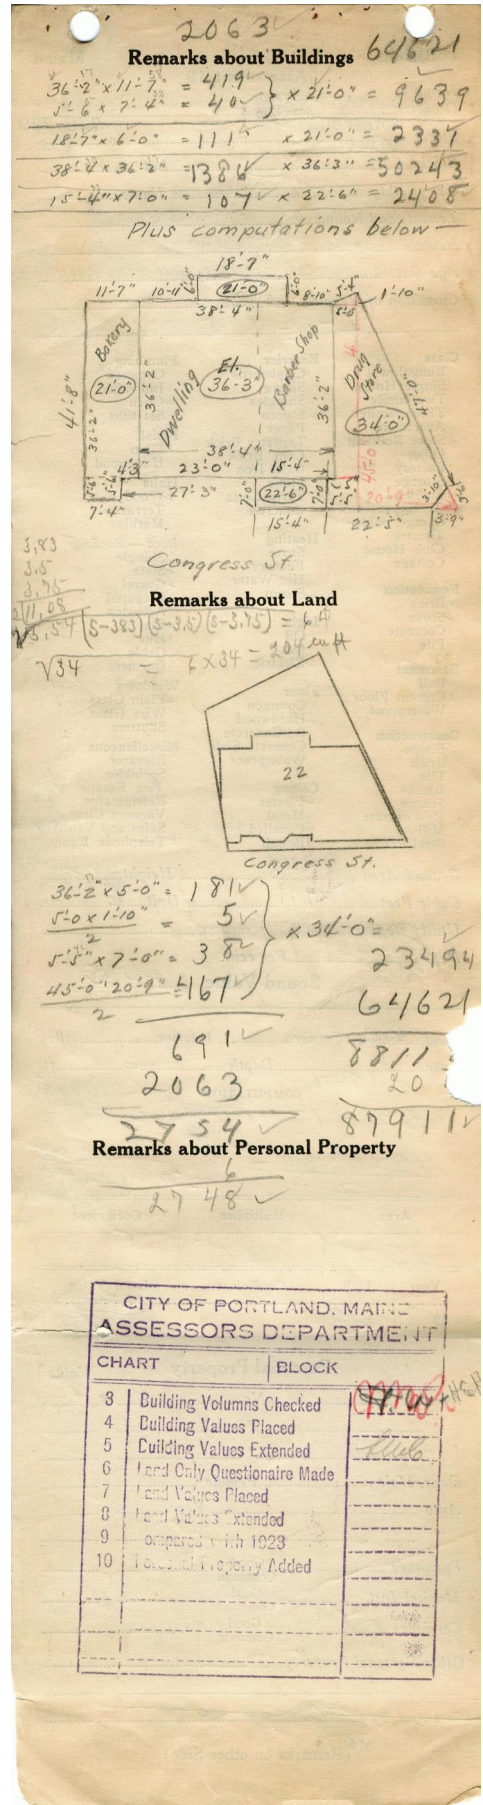 2063
Remarks about Buildings 64621
36'-2" x 11'-7" = 419
5'-6 x 7'-4" = 40 x 21'-0" = 9639
18'-7" x 6'-0" = 111 x 21'-0" = 2331
38'-4 x 36'-2" = 1386 x 36'-3" = 50243
15'-4" x 7'-0" = 107 x 22'-6" = 2408
Plus computations below—
18'-7"
11'-7" 10'-11" 6'-0" 21'-0" 6'-0" 8'-10" 5'-4" 1'-10"
38'-4" 5'-0"
Bakery
21'-0"
41'-8"
36'-2"
36'-2"
Dwelling
El.
36'-3"
Barber Shop
36'-2"
Drug Store
34'-0"
47'-0"
45'-0"
38'-4"
4'-3" 23'-0" 15'-4"
5'-6" 5'-6" 27'-3" 7'-0" 22'-6" 7'-0" 5'-5" 20'-9" 3'-10" 3'-6"
7'-4" 15'-4" 22'-5" 3'-9"
Congress St.
3.83
3.5
3.75
2 11.08
√5.54 (S-383)(S-3.5)(S-3.75) = 6
Remarks about Land
√34 = 6 x 34 = 204 cu ft
22
Congress St.
36'-2" x 5'-0" = 181
5'-0 x 1'-10"
2 = 5 x 34'-0" =
5'-5" x 7'-0" = 38 23494
45'-0" 20'-9" = 467
2 64621
691 8811
2063 20
2754 87911
Remarks about Personal Property
6
2748
CITY OF PORTLAND, MAINE
ASSESSORS DEPARTMENT
CHART BLOCK
3 Building Volumns Checked
4 Building Values Placed
5 Building Values Extended
6 Land Only Questionaire Made
7 Land Values Placed
8 Land Values Extended
9 ompared with 1923
10 Personal Property Added